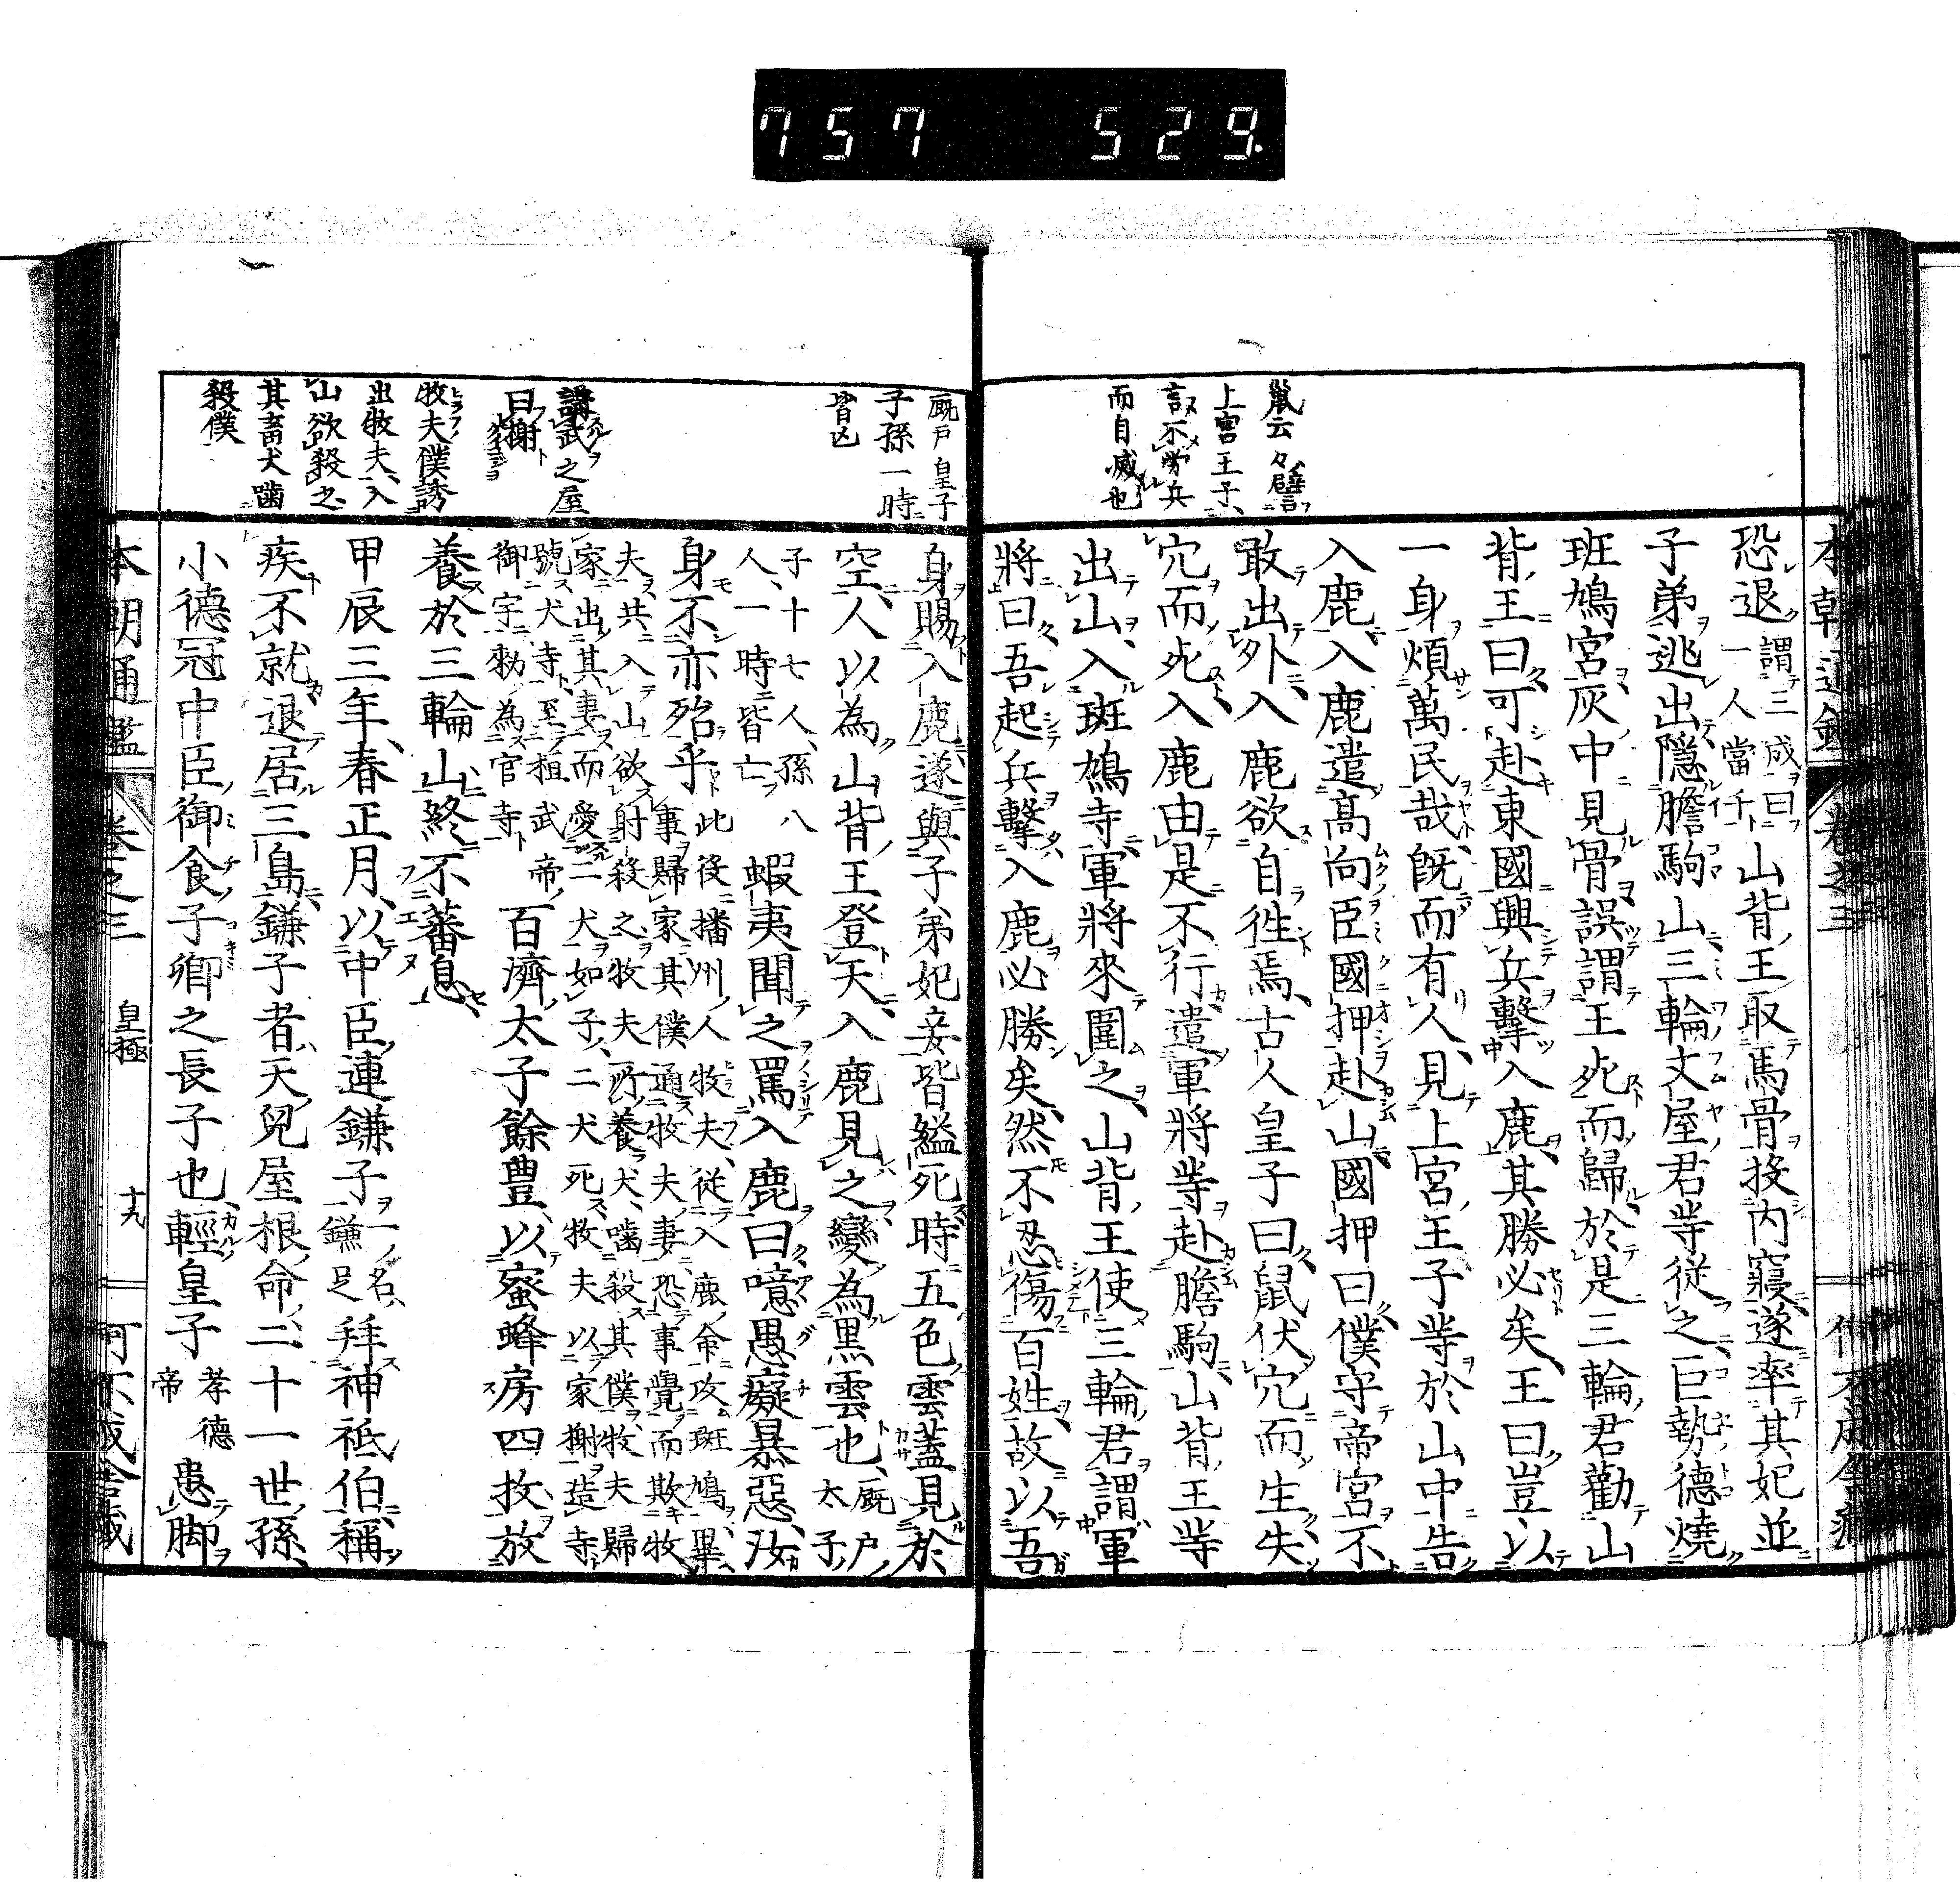 757 529.
鼠云々譬
上宮王子、
言不勞兵
而自威也
恐退謂三成曰
一人當千山背王取馬骨投內寢遂率其妃並
子弟逃出隱膽駒山三輪文屋君等從之巨勢德燒
斑鳩宮灰中見骨誤謂王死而歸於是三輪君勸山
背王曰可赴東國興兵擊入鹿其勝必矣王曰豈以
一身煩萬民哉既而有人見上宮王子等於山中告
入鹿入鹿遣高向臣國押赴山國押曰僕守帝宮不
敢出外入鹿欲自徃焉古人皇子曰鼠伏穴而生失
穴而死入鹿由是不行遣軍將等赴膽駒山背王等
出山入斑鳩寺軍將來圍之山背王使三輪君謂軍
將曰吾起兵擊入鹿必勝矣然不忍傷百姓故以吾
厩戸皇子
子孫一時
皆亡
講武之屋
曰榭
牧夫僕誘
出牧夫入
山欲殺之
其畜犬噛
殺僕
身賜入鹿遂與子弟妃妾皆縊死時五色雲蓋見於
空人以為山背王登天入鹿見之變為黒雲也厩戸
太子
子十七人孫八
人一時皆亡蝦夷聞之罵入鹿曰噫愚癡暴惡汝
身不亦殆乎此役播州人牧夫從入鹿命攻斑鳩畢
事歸家其僕通牧夫妻恐事覺而欺牧
夫共入山欲射殺之牧夫所養犬噛殺其僕牧夫歸
家出其妻而愛二犬如子二犬死牧夫以家榭造寺
號犬寺至桓武帝
御宇勑為官寺百濟太子餘豊以蜜蜂房四枚放
養於三輪山終不蕃息
甲辰三年春正月以中臣連鎌子一名
鎌足拜神祇伯稱
疾不就退居三島鎌子者天兒屋根命二十一世孫
小德冠中臣御食子卿之長子也輕皇子孝德
帝患脚
本朝通鑑 卷之三 皇極 十九